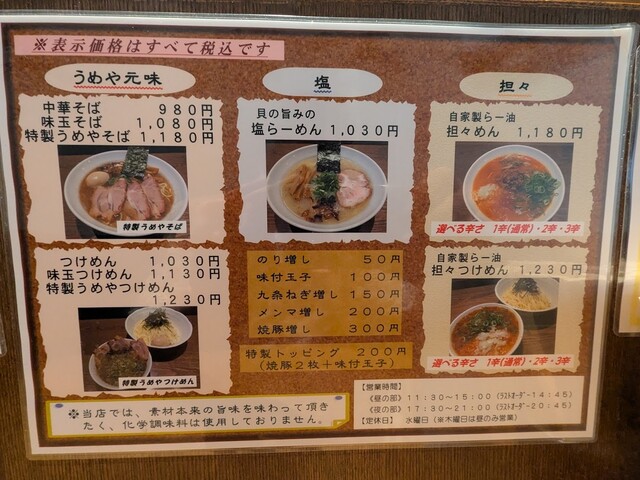 ※表示価格はすべて税込です
うめや元味
中華そば 980円
味玉そば 1,080円
特製うめやそば 1,180円
特製うめやそば
つけめん 1,030円
味玉つけめん 1,130円
特製うめやつけめん
1,230円
特製うめやつけめん
※当店では、素材本来の旨味を味わって頂き
たく、化学調味料は使用しておりません。
塩
貝の旨みの
塩らーめん 1,030円
のり増し 50円
味付玉子 100円
九条ねぎ増し 150円
メンマ増し 200円
焼豚増し 300円
特製トッピング 200円
(焼豚2枚+味付玉子)
担々
自家製らー油
担々めん 1,180円
選べる辛さ 1辛(通常)・2辛・3辛
自家製らー油
担々つけめん 1,230円
選べる辛さ 1辛(通常)・2辛・3辛
【営業時間】
《昼の部》 11:30~15:00 (ラストオーダー14:45)
《夜の部》 17:30~21:00 (ラストオーダー20:45)
【定休日】 水曜日 (※木曜日は昼のみ営業)